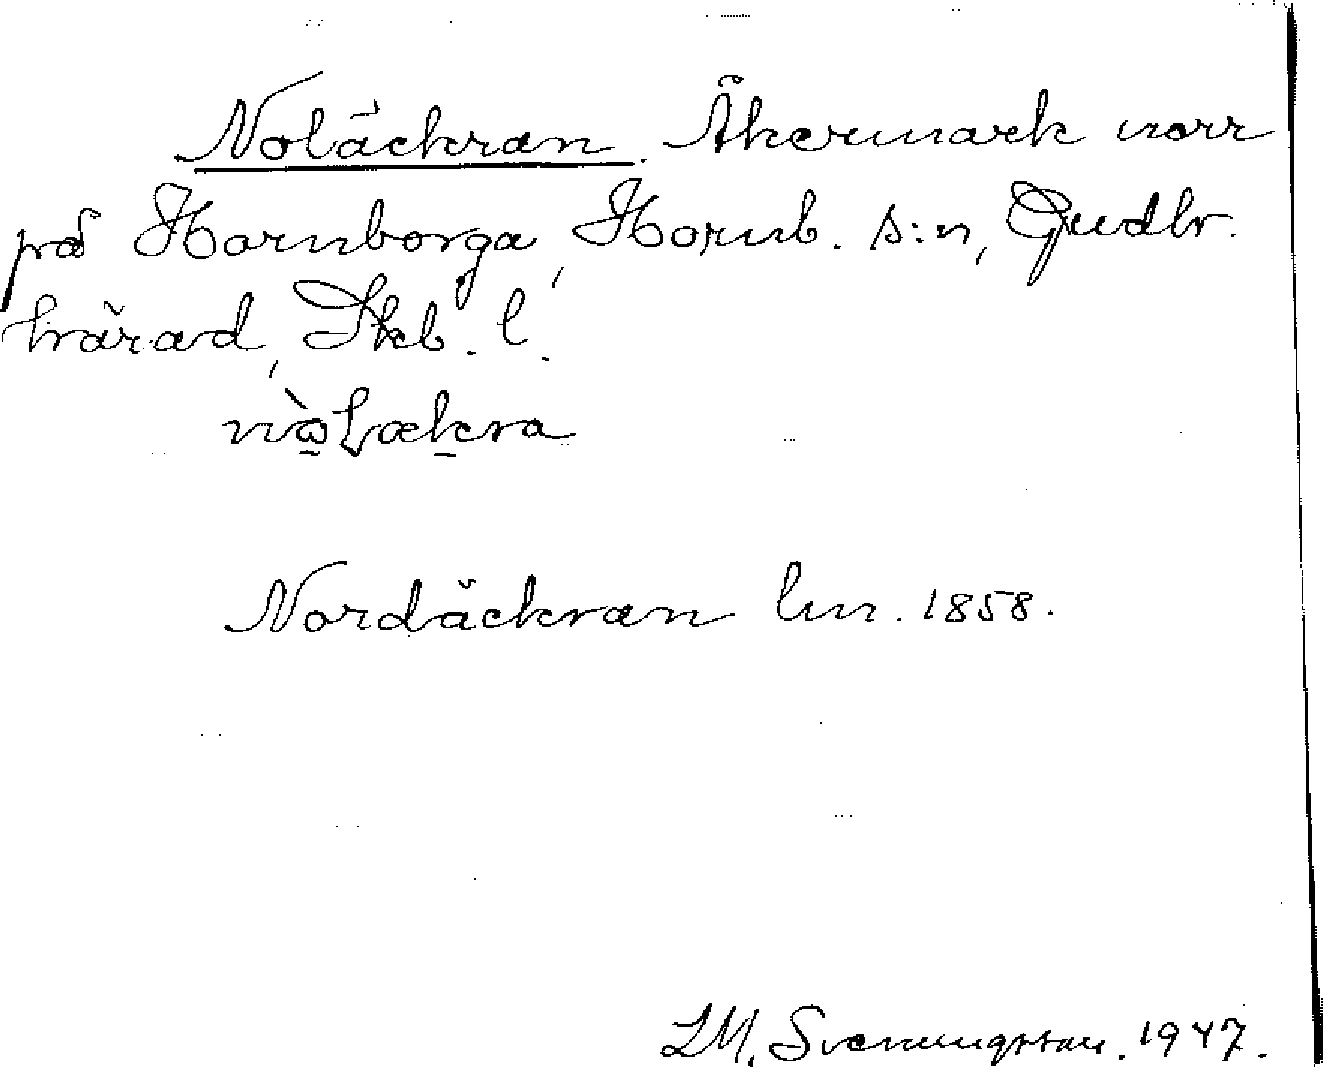 Noläckran. Åkermark norr
på Hornborga, Hornb. s:n, Gudhr.
härad, Skb. l.
nòɷLækra
Nordäckran lm. 1858.
LM. Svenungsson. 1947.